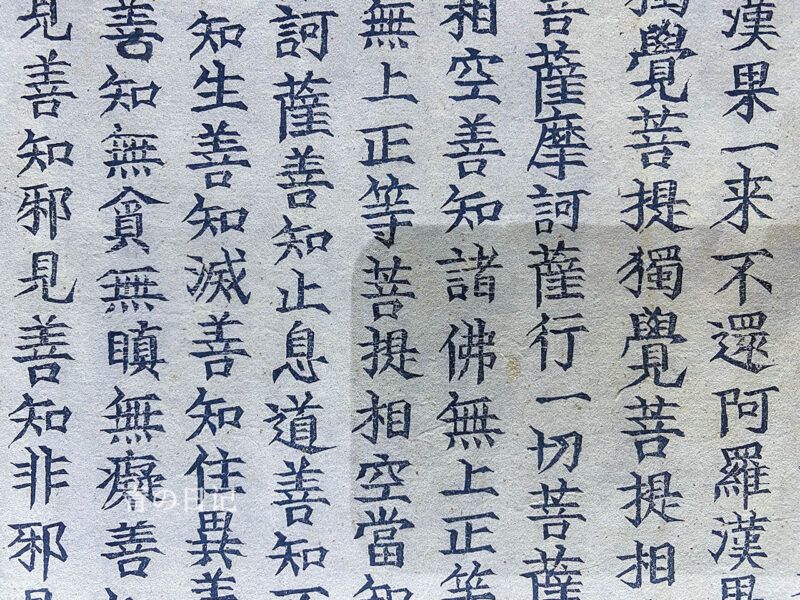 漢果一来不還阿羅漢果
獨覺菩提獨覺菩提相
菩薩摩訶薩行一切菩薩
相空善知諸佛無上正等
無上正等菩提相空當知
訶薩善知止息道善知
知生善知滅善知住異善
善知無貪無瞋無癡善
見善知邪見善知非邪見
の日记